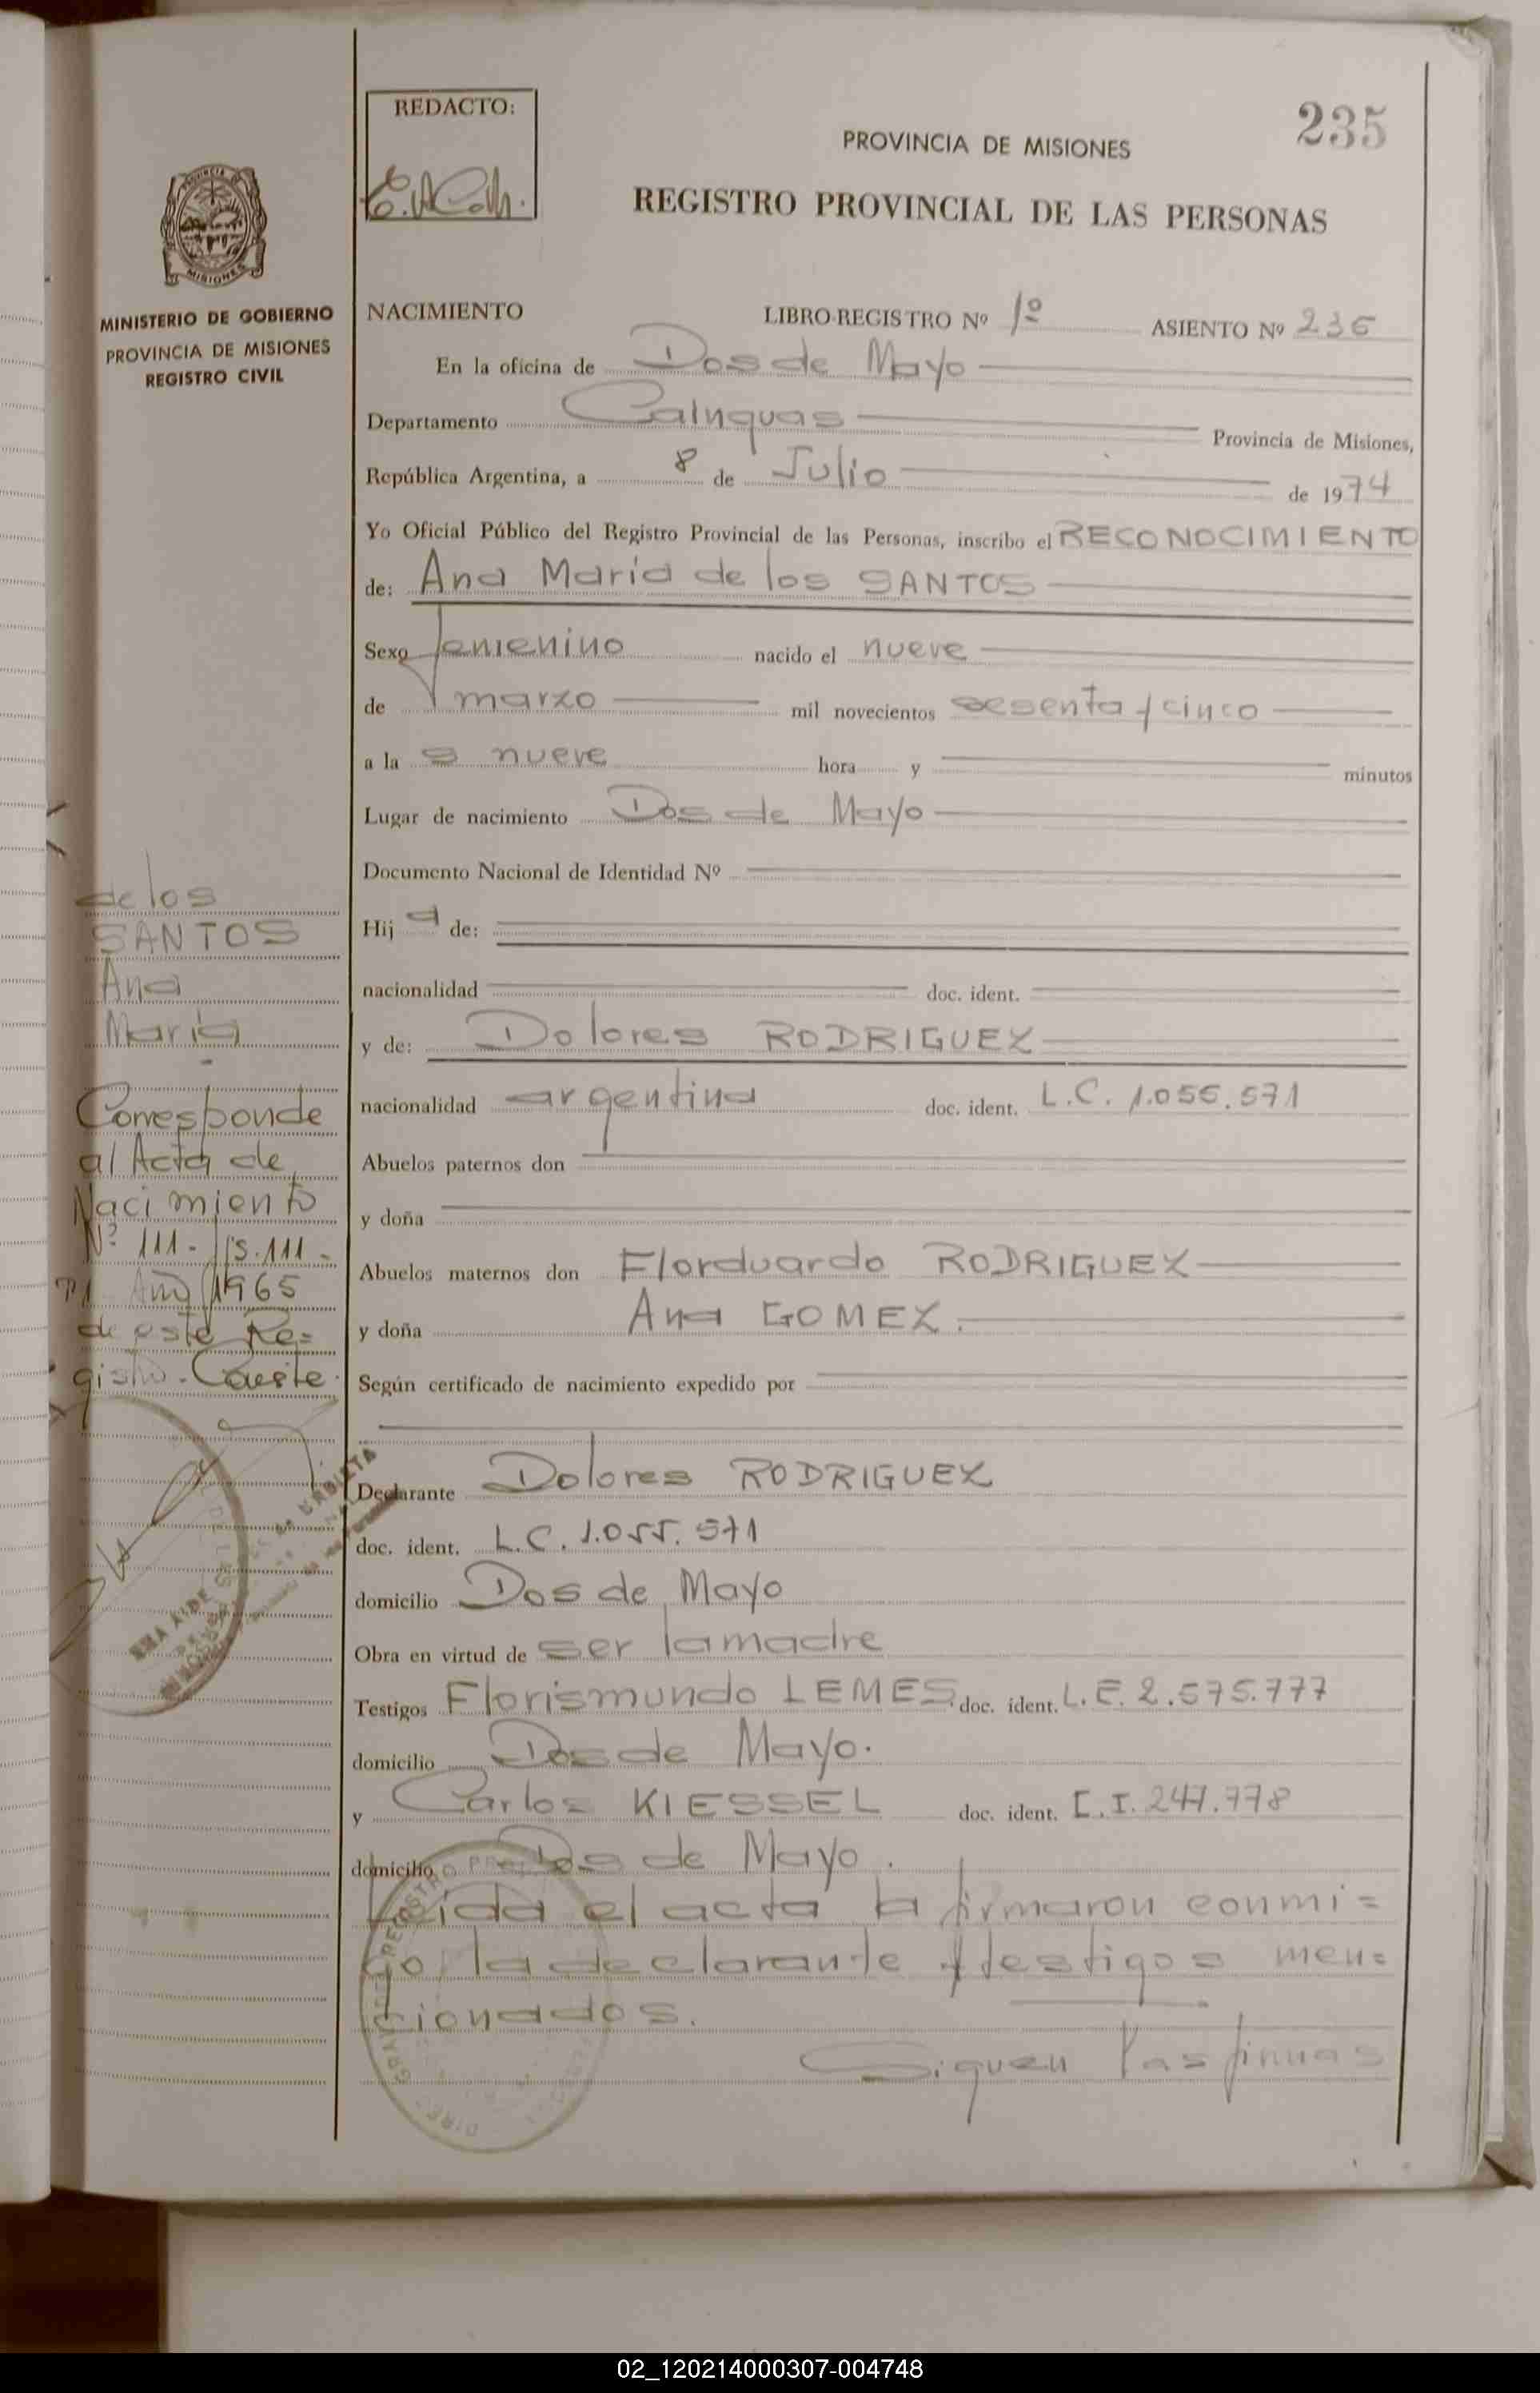 REDACTO:
235
PROVINCIA DE MISIONES
REGISTRO PROVINCIAL DE LAS PERSONAS
MISIONES
MINISTERIO DE GOBIERNO
PROVINCIA DE MISIONES
REGISTRO CIVIL
NACIMIENTO LIBRO-REGISTRO Nº 1º ASIENTO Nº 235
En la oficina de Dos de Mayo
Departamento Cainguas Provincia de Misiones,
República Argentina, a 8 de Julio de 1974
Yo Oficial Público del Registro Provincial de las Personas, inscribo el RECONOCIMIENTO
de: Ana Maria de los SANTOS
Sexo femenino nacido el nueve
de marzo mil novecientos sesenta y cinco
a la s nueve hora y minutos
Lugar de nacimiento Dos de Mayo
Documento Nacional de Identidad Nº
Hij a de:
nacionalidad doc. ident.
y de: Dolores RODRIGUEZ
nacionalidad argentina doc. ident. L.C. 1.055.571
Abuelos paternos don
y doña
Abuelos maternos don Florduardo RODRIGUEZ
y doña Ana GOMEZ.
Según certificado de nacimiento expedido por
Declarante Dolores RODRIGUEZ
doc. ident. L.C. 1.055.571
domicilio Dos de Mayo
Obra en virtud de ser la madre
Testigos Florismundo LEMES doc. ident. L.E. 2.575.777
domicilio Dos de Mayo.
y Carlos KIESSEL doc. ident. C.I. 247.778
domicilio Dos de Mayo.
Leida el acta la firmaron conmi=
go, la declarante y testigos men=
cionados.
Siguen las firmas
de los
SANTOS
Ana
Maria
Corresponde
al Acta de
Nacimiento
Nº 111 - fs. 111 -
Año 1965
de este Re=
gistro. Conste.
02_120214000307-004748